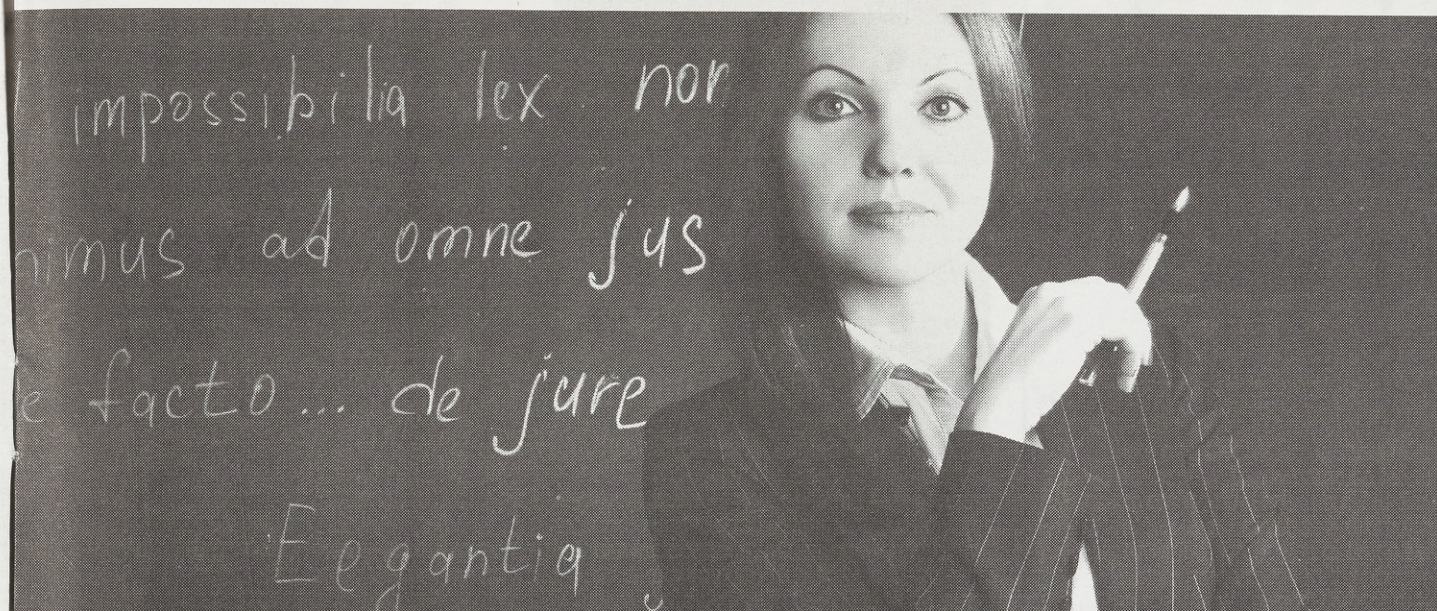 impossibilia lex non
nimus ad omne jus
e facto... de jure
Eegantia